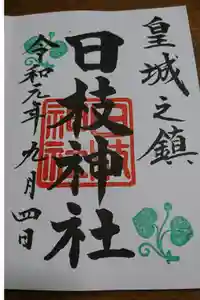 皇城之鎮
日枝神社
令和元年九月四日
日枝神社